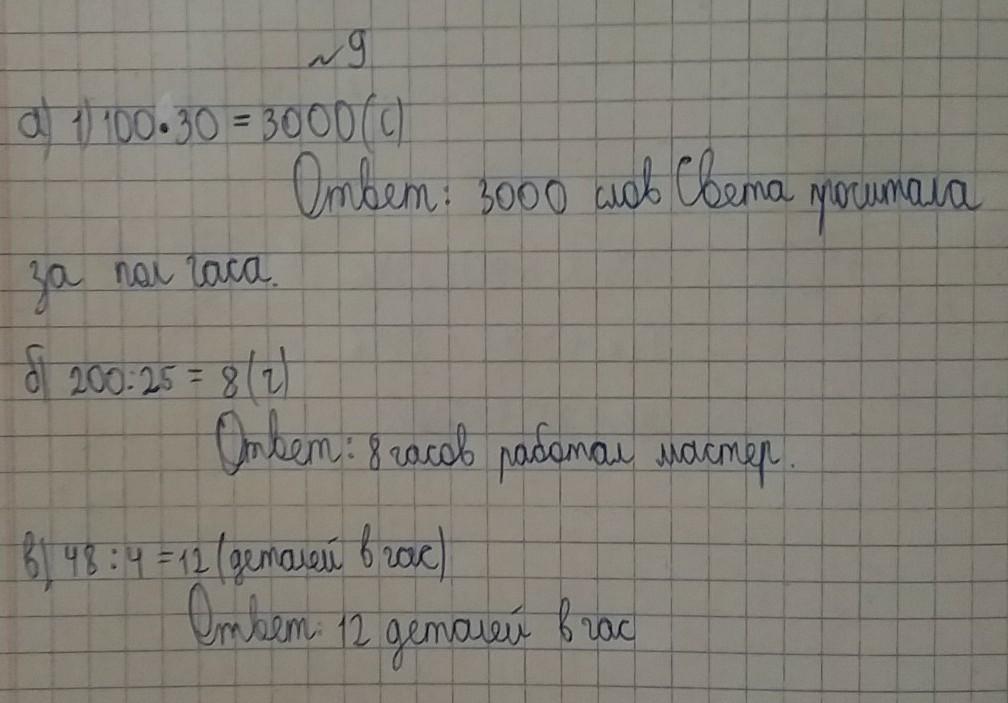 №9
а) 1) 100·30 = 3000 (с)
Ответ: 3000 слов Света прочитала
за пол часа.
б) 200:25 = 8 (ч)
Ответ: 8 часов работал мастер.
в) 48:4=12 (деталей в час)
Ответ: 12 деталей в час